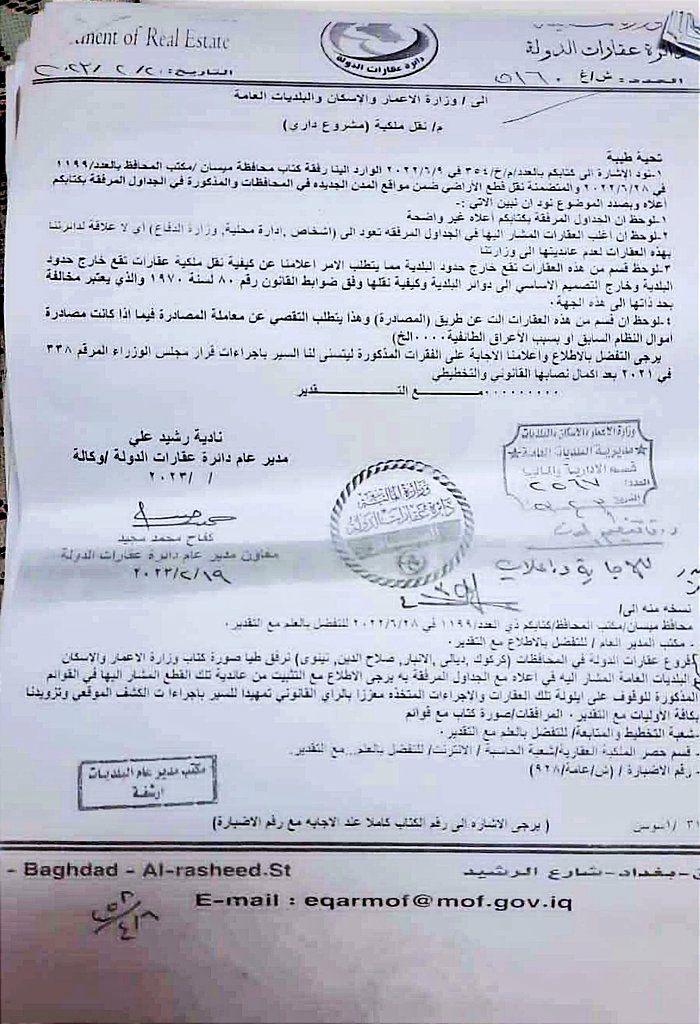 ment of Real Estate
دائرة عقارات الدولة
دائرة عقارات الدولة
التاريخ: ٢٠٢٣/٢/٢٠
العدد: ش/ع ٥١٦٠
الى / وزارة الاعمار والإسكان والبلديات العامة
م/ نقل ملكية (مشروع داري)
تحية طيبة
١-نود الإشارة الى كتابكم بالعدد/م/خ/٣٥٤ في ٢٠٢٢/٦/٩ الوارد الينا رفقة كتاب محافظة ميسان /مكتب المحافظ بالعدد/١١٩٩
في ٢٠٢٢/٦/٢٨ والمتضمنة نقل قطع الأراضي ضمن مواقع المدن الجديده في المحافظات والمذكورة في الجداول المرفقة بكتابكم
أعلاه وبصدد الموضوع نود ان نبين الاتي :-
١-لوحظ ان الجداول المرفقة بكتابكم أعلاه غير واضحة
٢-لوحظ ان أغلب العقارات المشار اليها في الجداول المرفقه تعود الى (اشخاص ,ادارة محلية, وزارة الدفاع) أي لا علاقة لدائرتنا
بهذه العقارات لعدم عائديتها الى وزارتنا
٣-لوحظ قسم من هذه العقارات تقع خارج حدود البلدية مما يتطلب الامر اعلامنا عن كيفية نقل ملكية عقارات تقع خارج حدود
البلدية وخارج التصميم الاساسي الى دوائر البلدية وكيفية نقلها وفق ضوابط القانون رقم ٨٠ لسنة ١٩٧٠ والذي يعتبر مخالفة
بحد ذاتها الى هذه الجهة.
٤-لوحظ ان قسم من هذه العقارات الت عن طريق (المصادرة) وهذا يتطلب التقصي عن معاملة المصادرة فيما اذا كانت مصادرة
اموال النظام السابق او بسبب الأعراق الطائفية....الخ)
يرجى التفضل بالاطلاع واعلامنا الاجابة على الفقرات المذكورة ليتسنى لنا السير باجراءات قرار مجلس الوزراء المرقم ٣٣٨
في ٢٠٢١ بعد اكمال نصابها القانوني والتخطيطي
..........مـــع التـــقدير
نادية رشيد علي
مدير عام دائرة عقارات الدولة /وكالة
/ /٢٠٢٣
كفاح محمد مجيد
معاون مدير عام دائرة عقارات الدولة
٢٠٢٣/٢/١٩
وزارة الاعمار والاسكان والبلديات
مديرية البلديات العامة
قسم الادارية والمالية
العدد: ٢٥٦٧
وزارة المالية
دائرة عقارات الدولة
نسخه منه الى/
محافظ ميسان/مكتب المحافظ/كتابكم ذي العدد/١١٩٩ في ٢٠٢٢/٦/٢٨ للتفضل بالعلم مع التقدير.
- مكتب المدير العام / للتفضل بالاطلاع مع التقدير.
فروع عقارات الدولة في المحافظات (كركوك ,ديالى ,الانبار, صلاح الدين, نينوى) نرفق طيا صورة كتاب وزارة الاعمار والاسكان
البلديات العامة المشار اليه في اعلاه مع الجداول المرفقة به يرجى الاطلاع مع التثبيت من عائدية تلك القطع المشار اليها في القوائم
المذكورة للوقوف على ايلولة تلك العقارات والاجراءات المتخذه معززا بالراي القانوني تمهيدا للسير باجراءا ت الكشف الموقعي وتزويدنا
بكافة الأوليات مع التقدير. المرافقات/صورة كتاب مع قوائم
-شعبة التخطيط والمتابعة/ للتفضل بالعلم مع التقدير.
- قسم حصر الملكية العقارية/شعبة الحاسبة / الانترنت/ للتفضل بالعلم...مع التقدير.
- رقم الاضبارة / (ش/عامة/٩٢٨)
مكتب مدير عام البلديات
ارشفة
( يرجى الاشاره الى رقم الكتاب كاملا عند الاجابه مع رقم الاضبارة)
- Baghdad - Al-rasheed.St
-بغداد-شارع الرشيد
E-mail : eqarmof@mof.gov.iq